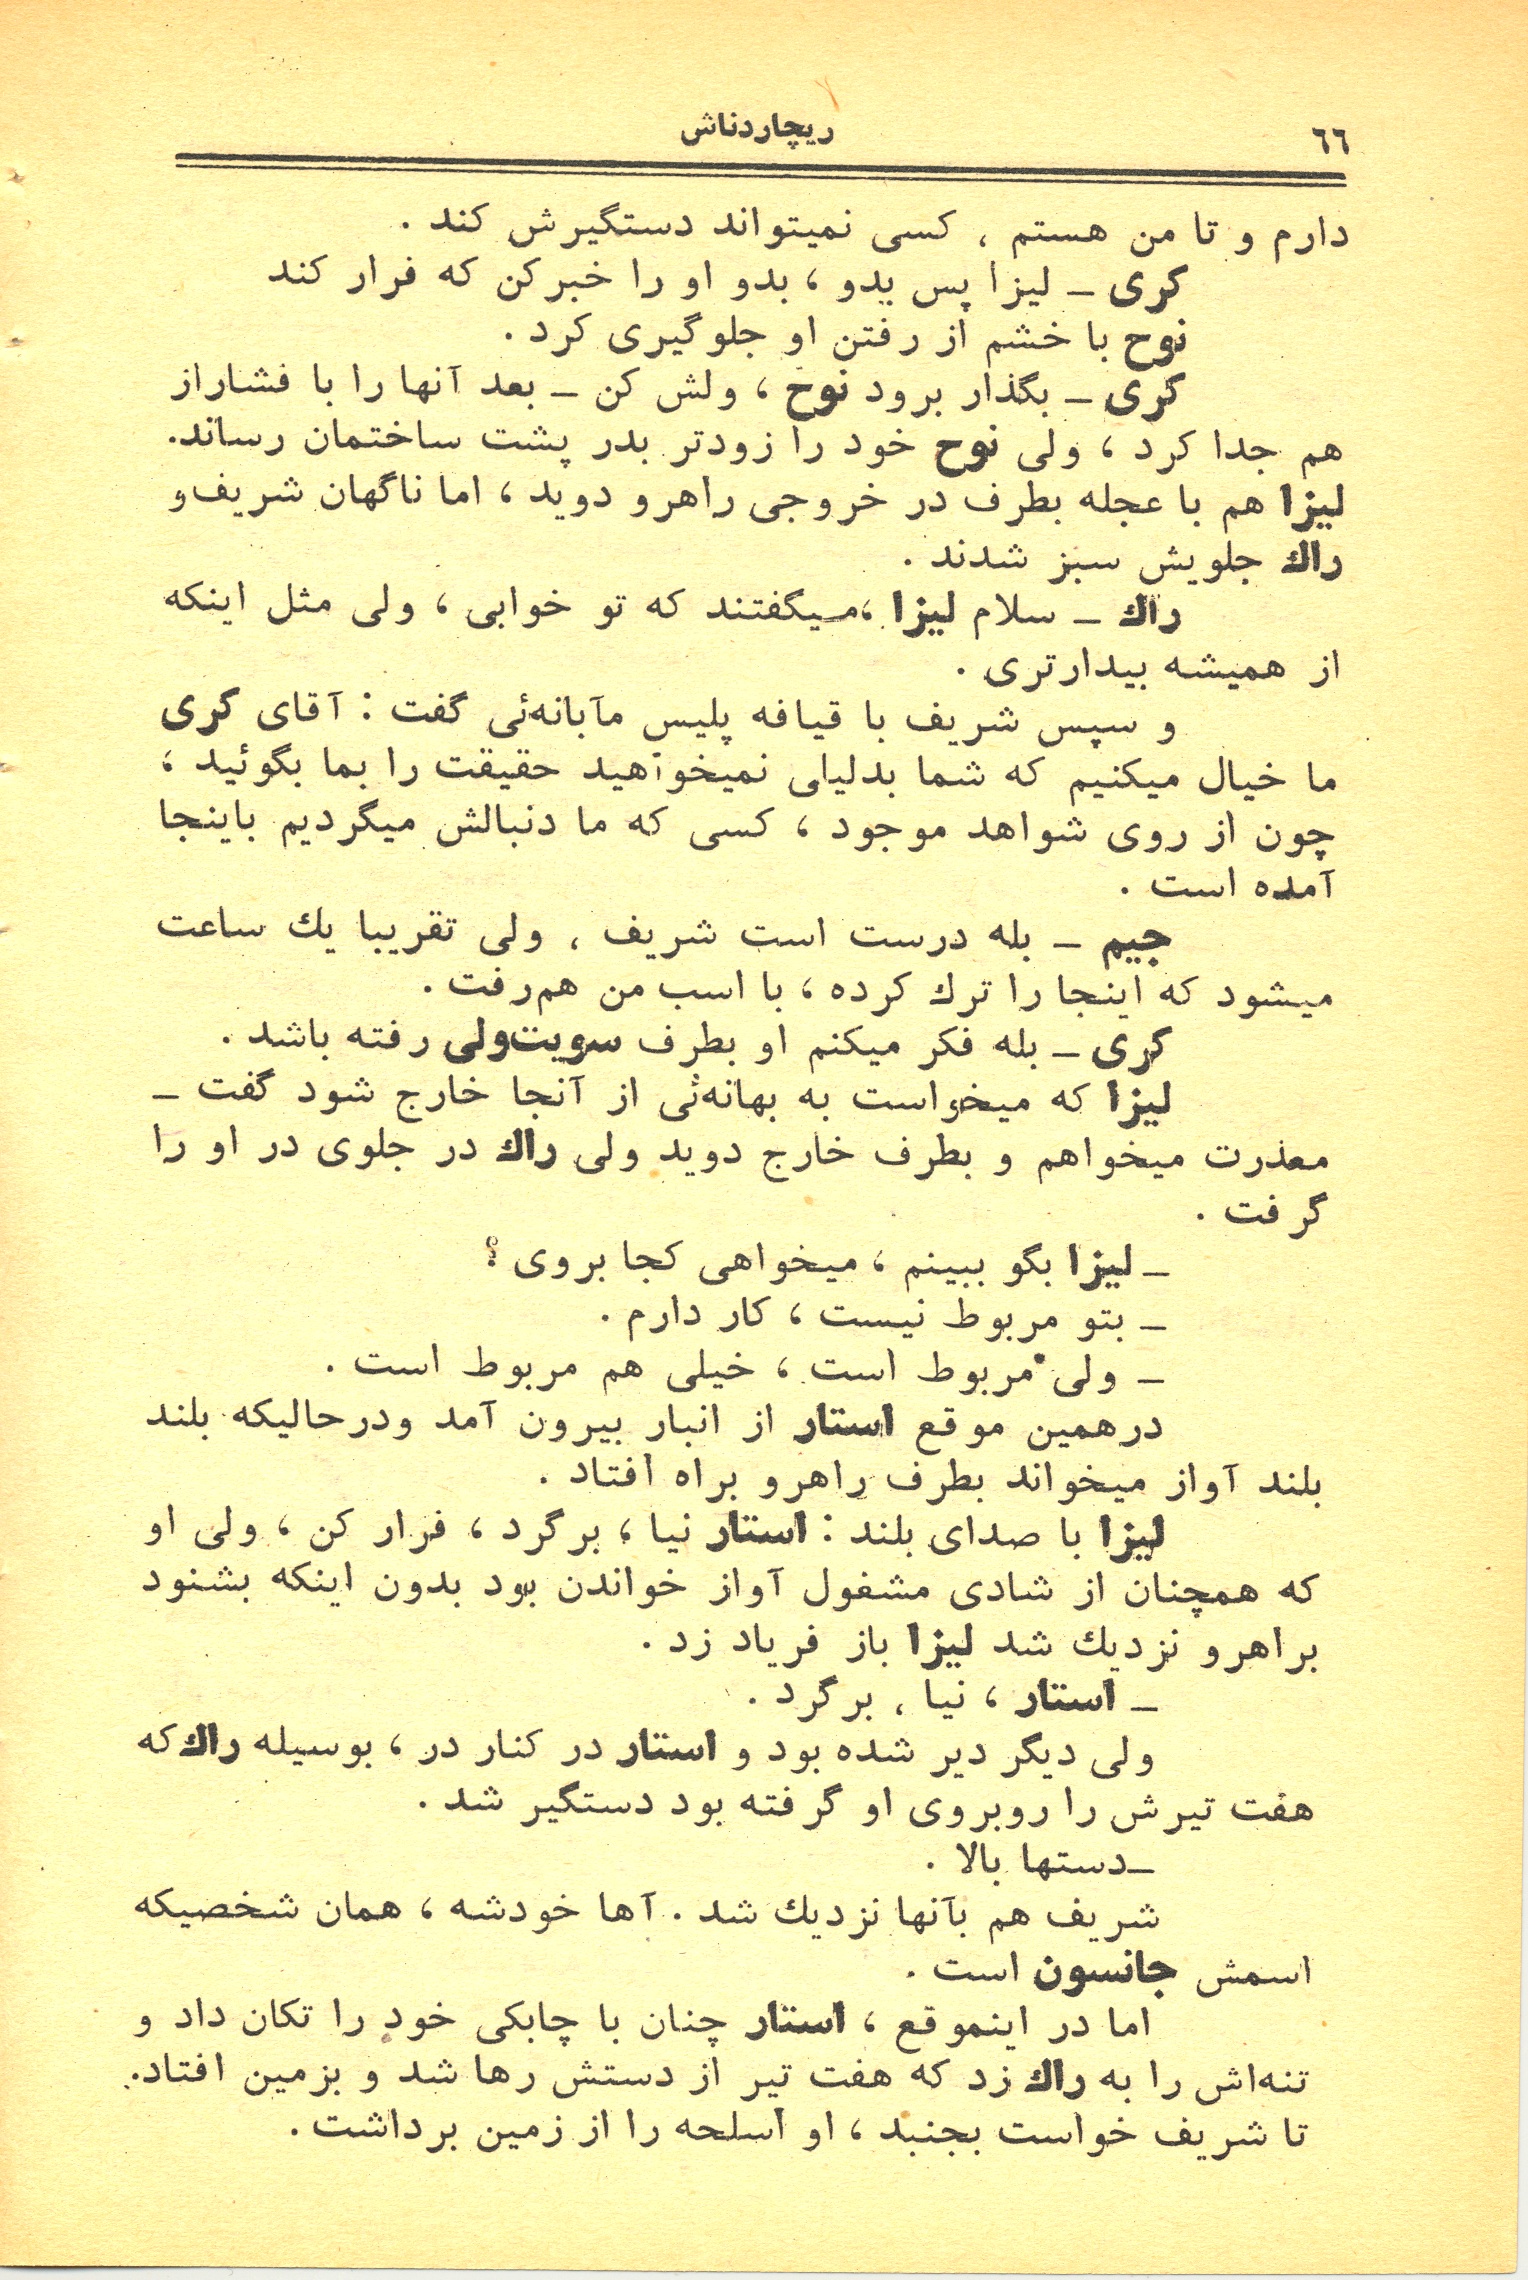 ٦٦
ریچاردناش
دارم و تا من هستم ، کسی نمیتواند دستگیرش کند .
کری ـ لیزا پس بدو ، بدو او را خبرکن که فرار کند
نوح با خشم از رفتن او جلوگیری کرد .
کری ـ بگذار برود نوح ، ولش کن ـ بعد آنها را با فشاراز
هم جدا کرد ، ولی نوح خود را زودتر بدر پشت ساختمان رساند.
لیزا هم با عجله بطرف در خروجی راهرو دوید ، اما ناگهان شریف و
راك جلویش سبز شدند .
راك ـ سلام لیزا ،میگفتند که تو خوابی ، ولی مثل اینکه
از همیشه بیدارتری .
و سپس شریف با قیافه پلیس مآبانه‌ئی گفت : آقای کری
ما خیال میکنیم که شما بدلیلی نمیخواهید حقیقت را بما بگوئید ،
چون از روی شواهد موجود ، کسی که ما دنبالش میگردیم باینجا
آمده است .
جیم ـ بله درست است شریف ، ولی تقریبا یك ساعت
میشود که اینجا را ترك کرده ، با اسب من هم‌رفت .
کری ـ بله فکر میکنم او بطرف سویت‌ولی رفته باشد .
لیزا که میخواست به بهانه‌ئی از آنجا خارج شود گفت ـ
معذرت میخواهم و بطرف خارج دوید ولی راك در جلوی در او را
گرفت .
ـ لیزا بگو ببینم ، میخواهی کجا بروی ؟
ـ بتو مربوط نیست ، کار دارم .
ـ ولی مربوط است ، خیلی هم مربوط است .
درهمین موقع استار از انبار بیرون آمد ودرحالیکه بلند
بلند آواز میخواند بطرف راهرو براه افتاد .
لیزا با صدای بلند : استار نیا ، برگرد ، فرار کن ، ولی او
که همچنان از شادی مشغول آواز خواندن بود بدون اینکه بشنود
براهرو نزدیك شد لیزا باز فریاد زد .
ـ استار ، نیا ، برگرد .
ولی دیگر دیر شده بود و استار در کنار در ، بوسیله راك که
هفت تیرش را روبروی او گرفته بود دستگیر شد .
ـدستها بالا .
شریف هم بآنها نزدیك شد . آها خودشه ، همان شخصیکه
اسمش جانسون است .
اما در اینموقع ، استار چنان با چابکی خود را تکان داد و
تنه‌اش را به راك زد که هفت تیر از دستش رها شد و بزمین افتاد.
تا شریف خواست بجنبد ، او اسلحه را از زمین برداشت .